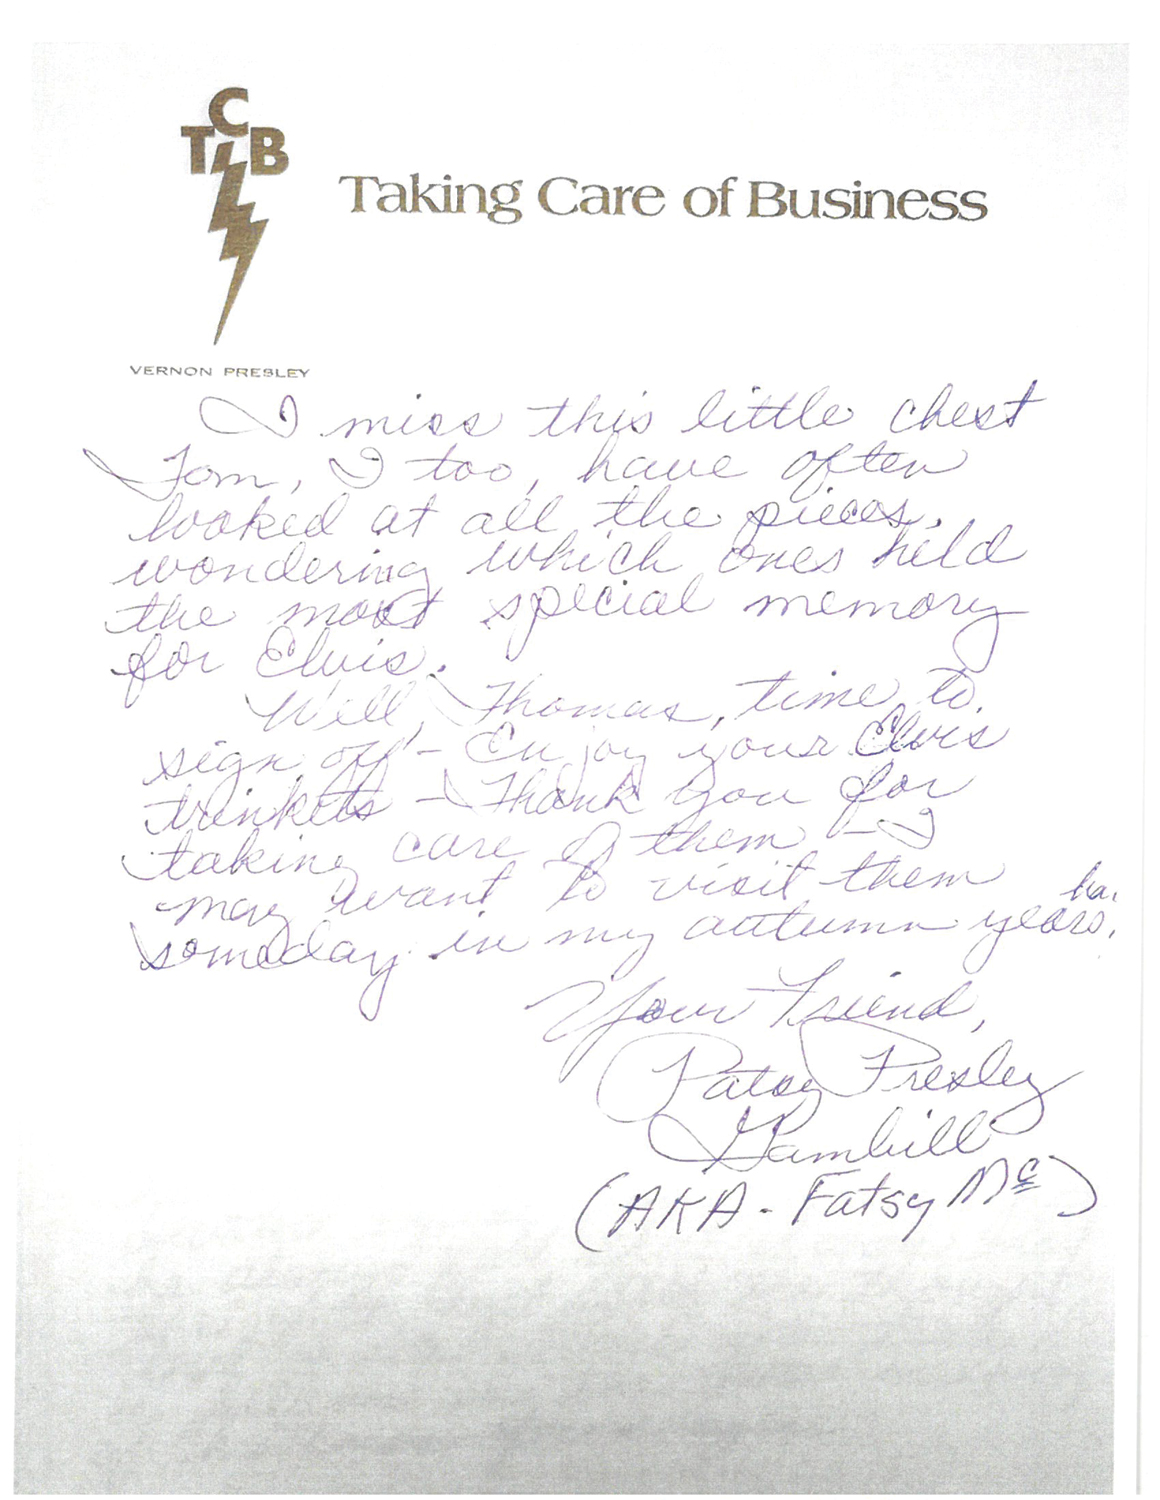 C
TCB
Taking Care of Business
VERNON PRESLEY
I miss this little chest
Tom, I too, have often
looked at all the pieces,
wondering which ones held
the most special memory
for Elvis.
Well, Thomas, time to
sign off - Enjoy your Elvis
trinkets - Thank you for
taking care of them - I
may want to visit them
someday in my autumn years, ha.
Your Friend,
Patsy Presley
Gambill
(AKA - Fatsy Mc)